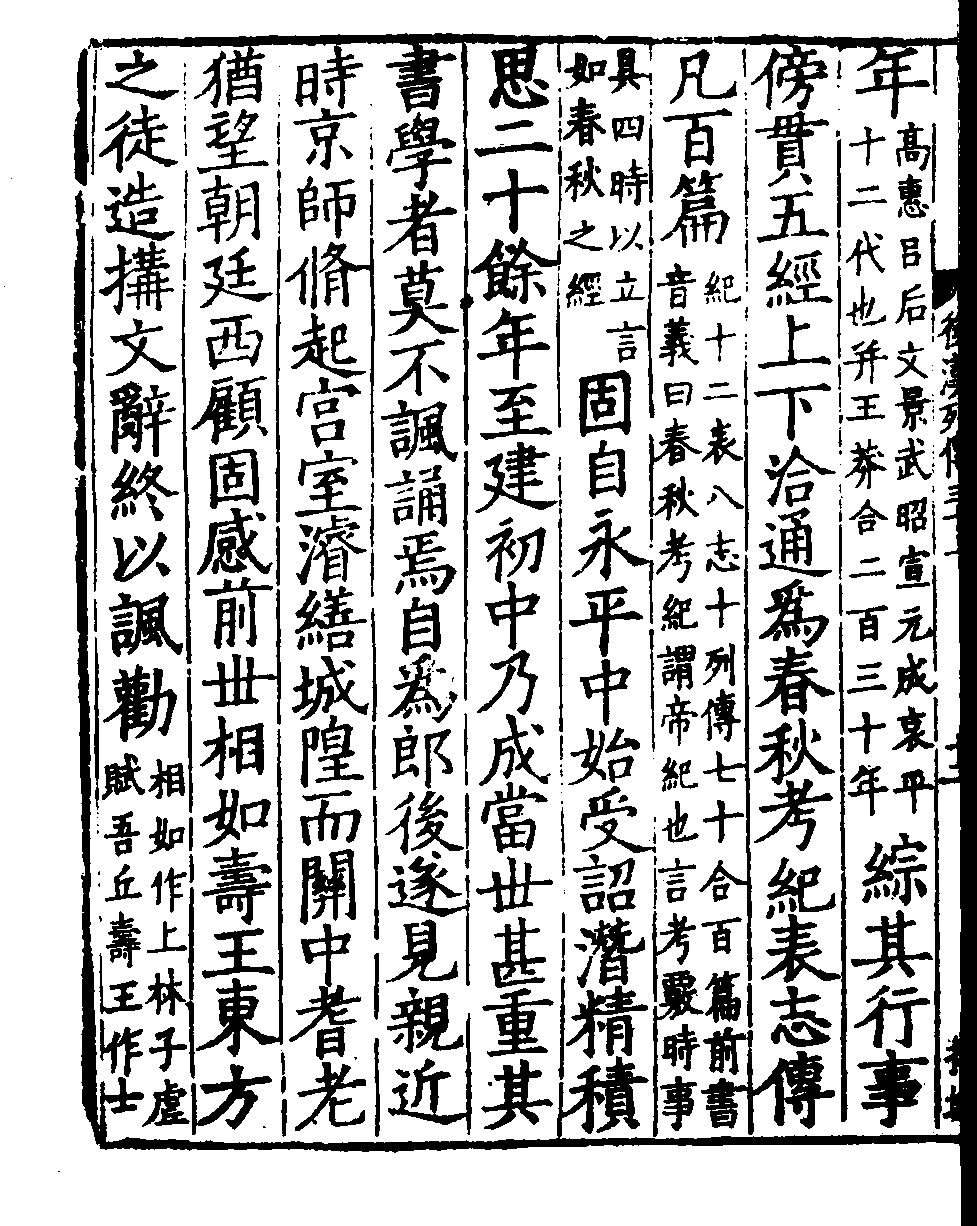 年高惠呂后文景武昭宣元成哀平十二代也并王莽合二百三十年綜其行事
傍貫五經上下洽通爲春秋考紀表志傳
凡百篇紀十二表八志十列傳七十合百篇前書音義曰春秋考紀謂帝紀也言考覈時事
具四時以立言如春秋之經固自永平中始受詔潛精積
思二十餘年至建初中乃成當世甚重其
書學者莫不諷誦焉自爲郎後遂見親近
時京師脩起宮室濬繕城隍而關中耆老
猶望朝廷西顧固感前世相如壽王東方
之徒造搆文辭終以諷勸相如作上林子虛賦吾丘壽王作士